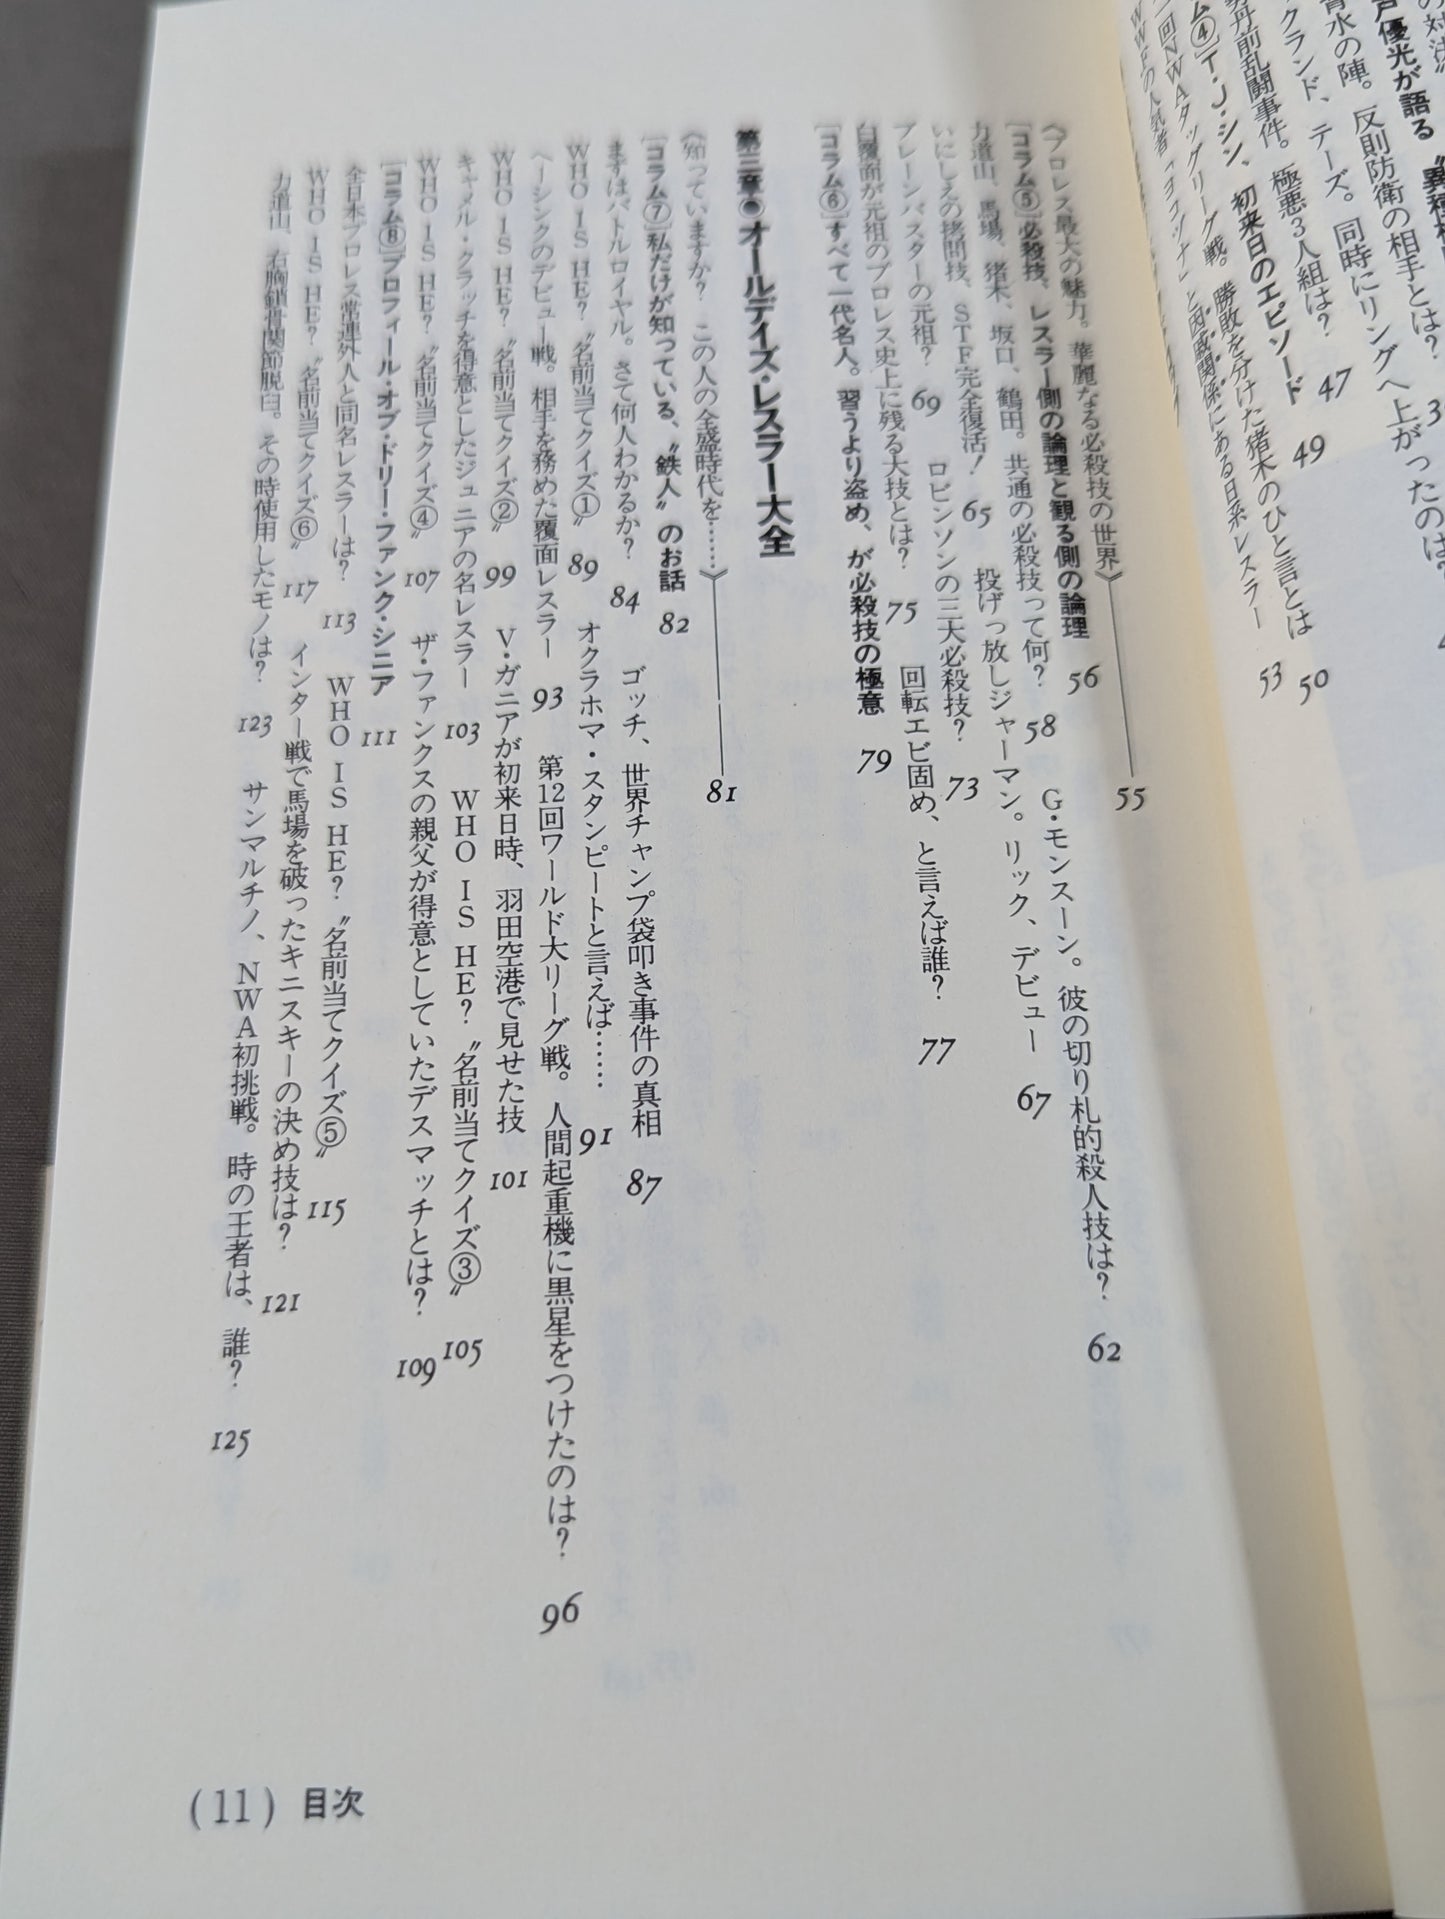 の対決
戸優光が語る
青水の陣。反則防衛の相手とは?
クランド、テーズ。同時にリングへ上がったのは?
丹前乱闘事件。極悪3人組は? 47
ム④]T・J・シン、初来日のエピソード 49
回NWAタッグリーグ戦。勝敗を分けた猪木のひと言とは 50
WWFの人気者「ヨコヅナ」と因戚関係にある日系レスラー 53
〈プロレス最大の魅力。華麗なる必殺技の世界〉 55
[コラム⑤]必殺技、レスラー側の論理と観る側の論理 56
力道山、馬場、猪木、坂口、鶴田。共通の必殺技って何? 58 G・モンスーン。彼の切り札的殺人技は? 62
いにしえの拷問技、STF完全復活! 65 投げっ放しジャーマン。リック、デビュー 67
ブレーンバスターの元祖? 69 ロビンソンの三大必殺技? 73
白覆面が元祖のプロレス史上に残る大技とは? 75 回転エビ固め、と言えば誰? 77
[コラム⑥]すべて一代名人。習うより盗め、が必殺技の極意 79
第三章●オールデイズ・レスラー大全
〈知っていますか? この人の全盛時代を……〉 81
[コラム⑦]私だけが知っている、〝鉄人〟のお話 82
まずはバトルロイヤル。さて何人わかるか? 84 ゴッチ、世界チャンプ袋叩き事件の真相 87
WHO IS HE?〝名前当てクイズ①〟 89 オクラホマ・スタンピートと言えば…… 91
ヘーシンクのデビュー戦。相手を務めた覆面レスラー 93 第12回ワールド大リーグ戦。人間起重機に黒星をつけたのは? 96
WHO IS HE?〝名前当てクイズ②〟 99 V・ガニアが初来日時、羽田空港で見せた技 101
キャメル・クラッチを得意としたジュニアの名レスラー 103 WHO IS HE?〝名前当てクイズ③〟 105
WHO IS HE?〝名前当てクイズ④〟 107 ザ・ファンクスの親父が得意としていたデスマッチとは? 109
[コラム⑧]プロフィール・オブ・ドリー・ファンク・シニア 111
全日本プロレス常連外人と同名レスラーは? 113 WHO IS HE?〝名前当てクイズ⑤〟 115
WHO IS HE?〝名前当てクイズ⑥〟 117 インター戦で馬場を破ったキニスキーの決め技は? 121
力道山、右胸鎖骨関節脱臼。その時使用したモノは? 123 サンマルチノ、NWA初挑戦。時の王者は、誰? 125
(11) 目次